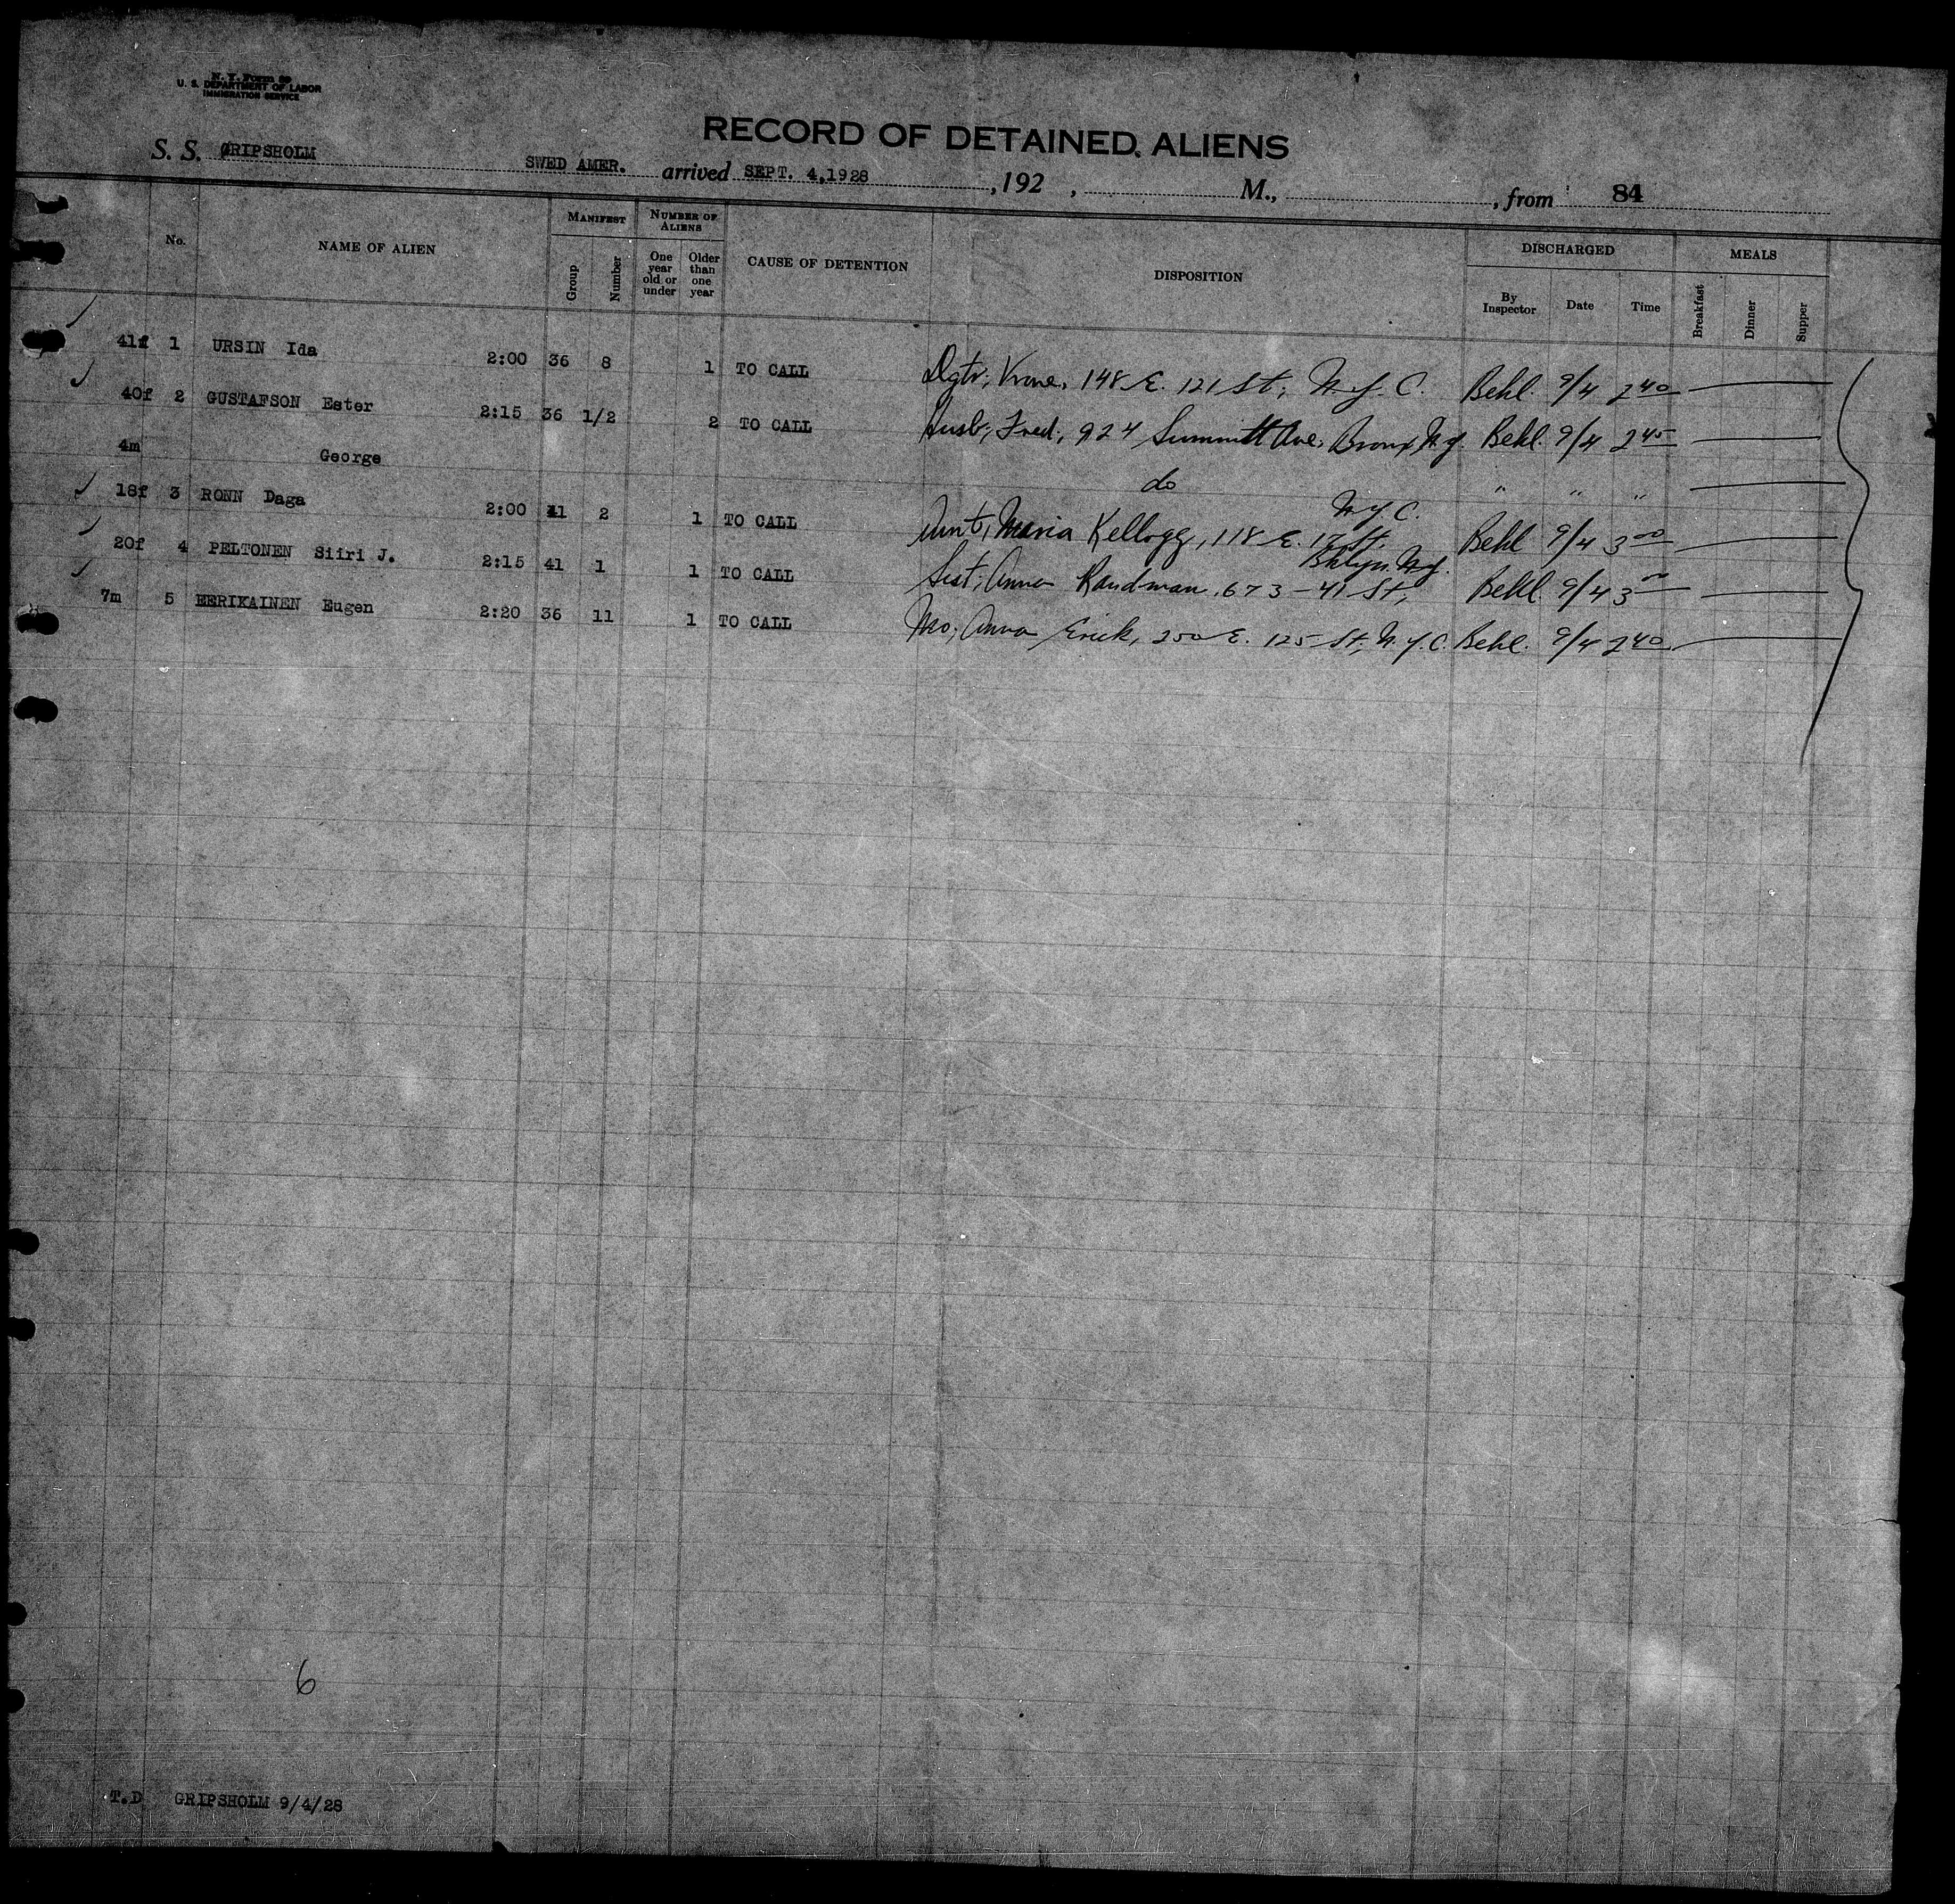 N. Y. Form 89
U. S. DEPARTMENT OF LABOR
IMMIGRATION SERVICE
RECORD OF DETAINED ALIENS
S. S. GRIPSHOLM SWED AMER. arrived SEPT. 4,1928 , 192 , M., , from 84
No. NAME OF ALIEN MANIFEST Group Number NUMBER OF ALIENS One year old or under Older than one year CAUSE OF DETENTION DISPOSITION DISCHARGED By Inspector Date Time MEALS Breakfast Dinner Supper
41f 1 URSIN Ida 2:00 36 8 1 TO CALL Dgtr; 148 E. 121 St; N.Y.C. Behl. 9/4 2 40
40f 2 GUSTAFSON Ester 2:15 36 1/2 2 TO CALL Husb; Fred, 924 Summitt Ave, Bronx N.Y. Behl. 9/4 2 45
4m George do " " "
18f 3 RONN Daga 2:00 41 2 1 TO CALL Aunt, Maria Kellogg, 118 E. 17 St. N.Y.C. Behl 9/4 3 00
20f 4 PELTONEN Siiri J. 2:15 41 1 1 TO CALL Sist; Anna Randman, 673 - 41 St; Bklyn. N.Y. Behl. 9/4 3 00
7m 5 EERIKAINEN Eugen 2:20 36 11 1 TO CALL Mo; Anna Erick, 250 E. 125 St; N.Y.C. Behl. 9/4 2 40
6
T.D GRIPSHOLM 9/4/28